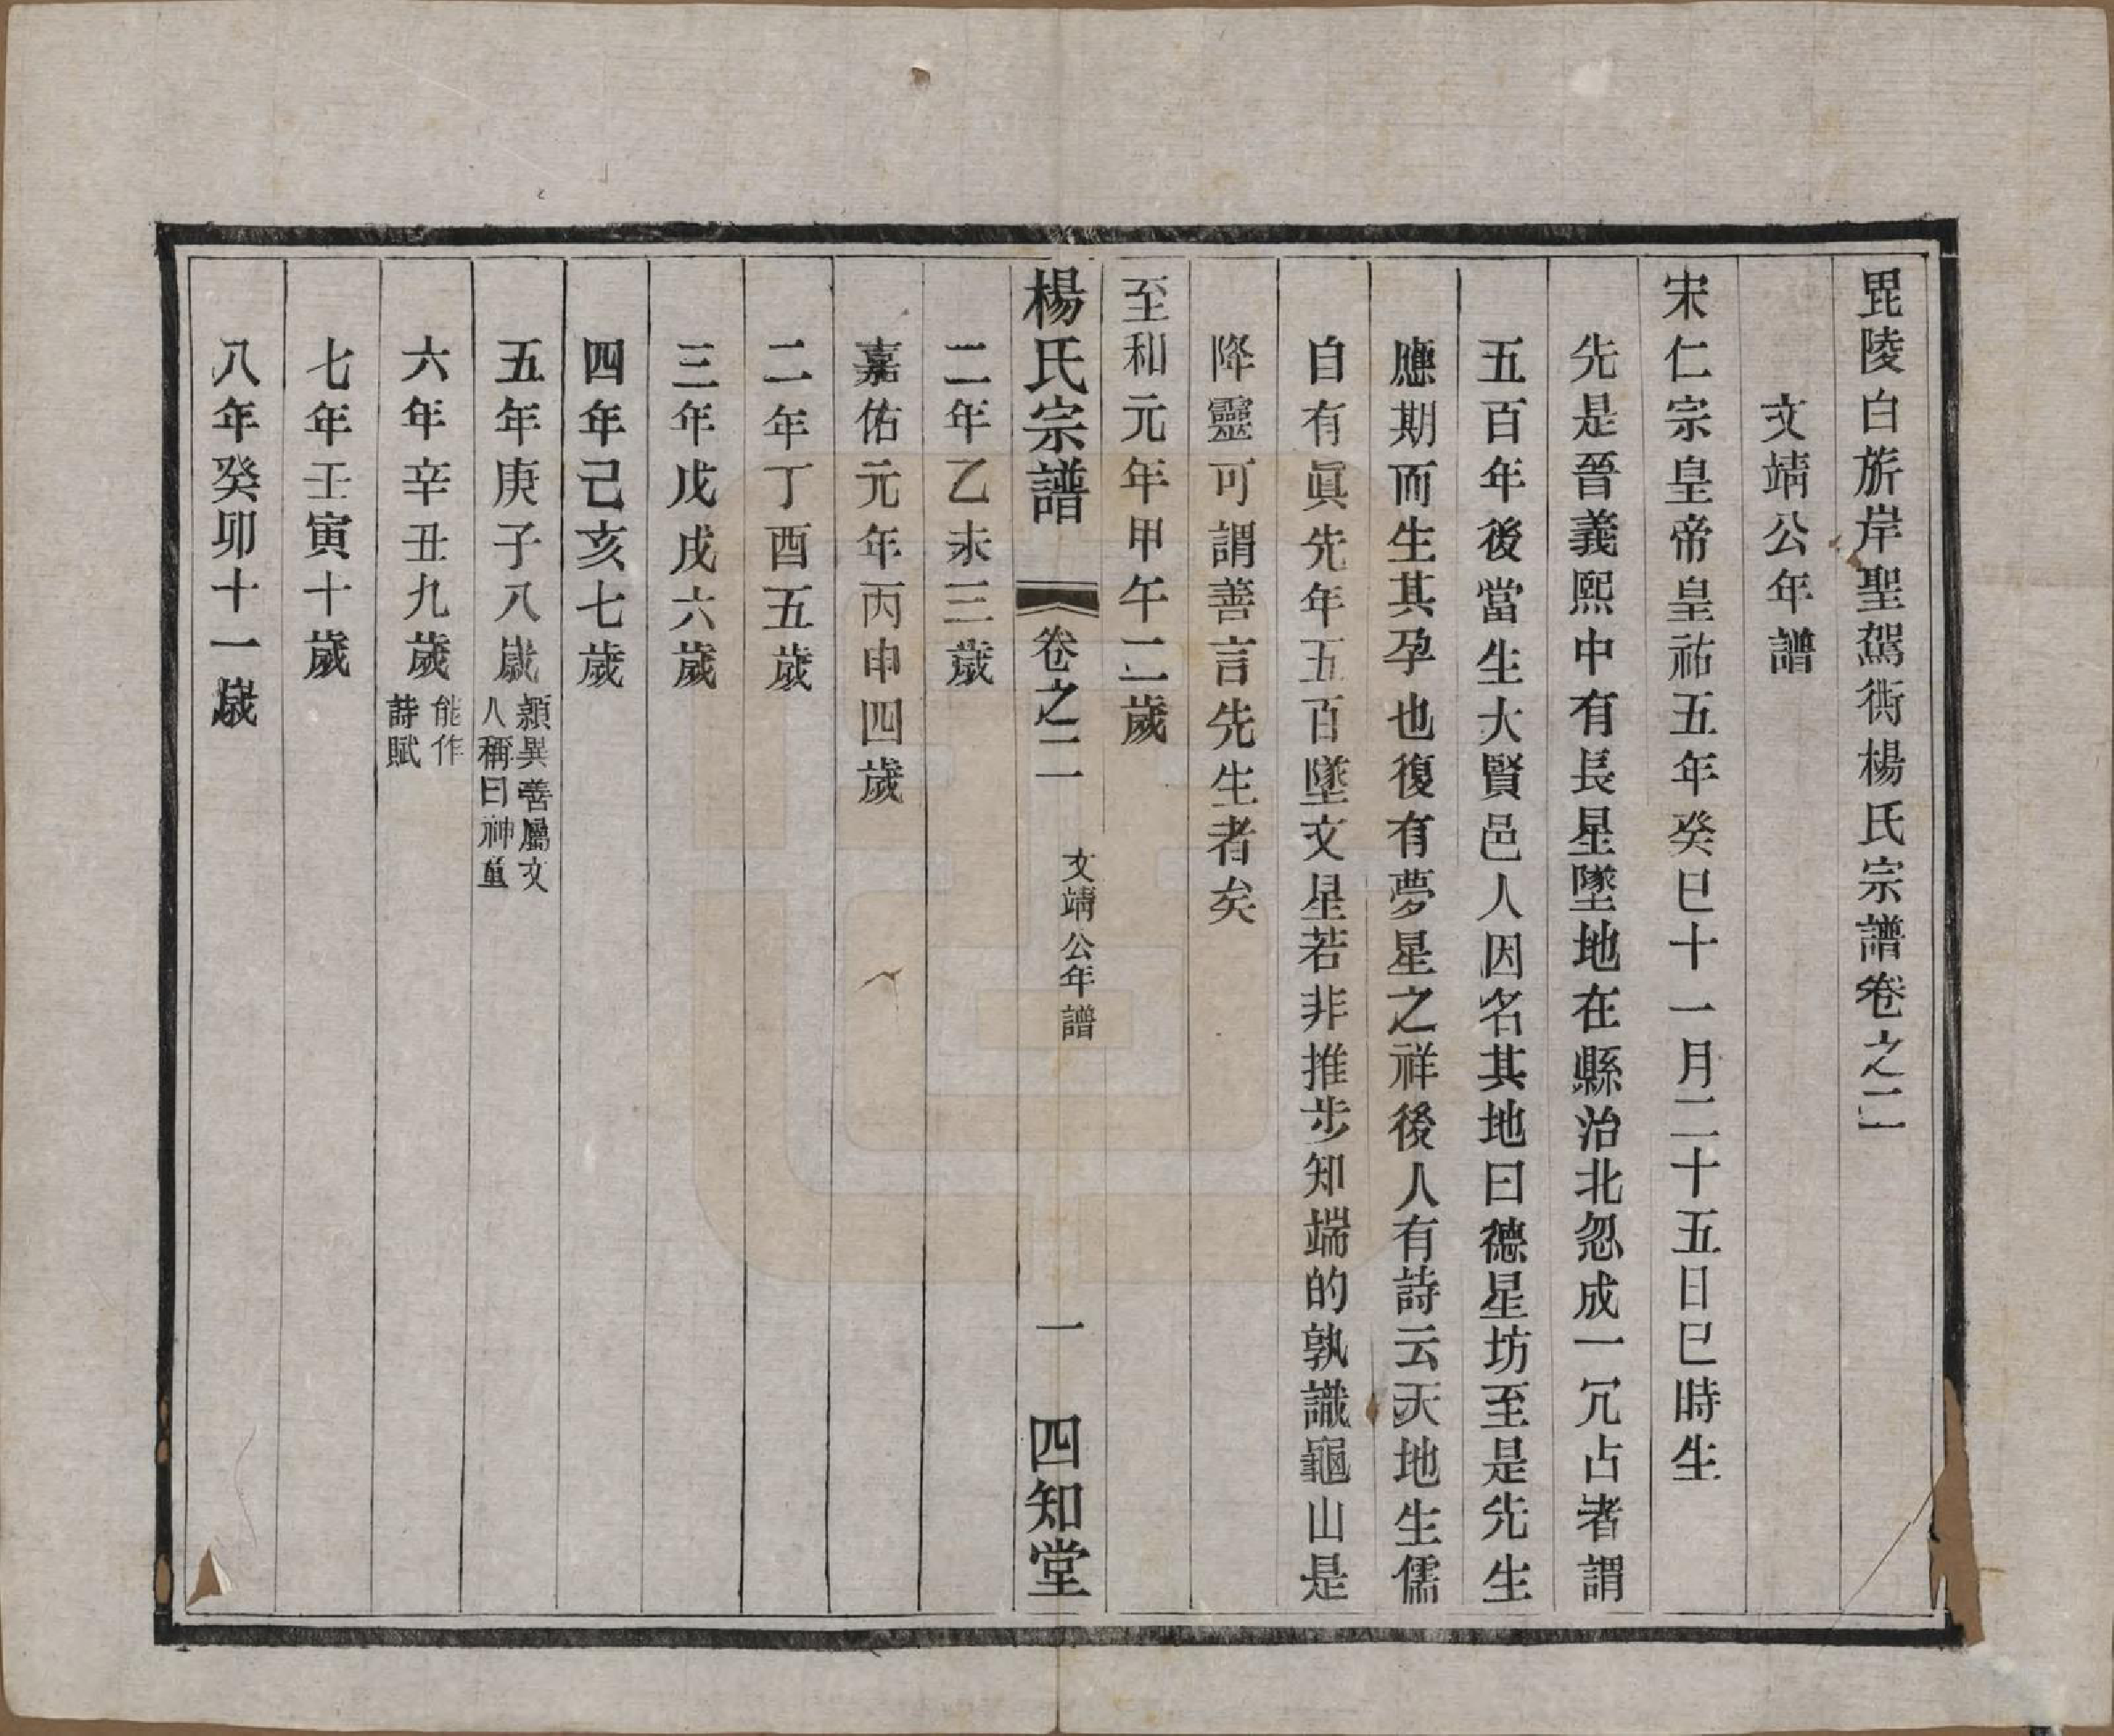 毘陵白旂岸聖駕衖楊氏宗譜卷之二
文靖公年譜
宋仁宗皇帝皇祐五年癸巳十一月二十五日巳時生
先是晉義熙中有長星墜地在縣治北忽成一冗占者謂
五百年後當生大賢邑人因名其地曰德星坊至是先生
應期而生其孕也復有夢星之祥後人有詩云天地生儒
自有眞先年五百墜文星若非推步知端的孰識龜山是
降靈可謂善言先生者矣
至和元年甲午二歲
楊氏宗譜 卷之二 文靖公年譜 一 四知堂
二年乙未三歲
嘉佑元年丙申四歲
二年丁酉五歲
三年戊戌六歲
四年己亥七歲
五年庚子八歲 頴異善屬文
人稱曰神童
六年辛丑九歲 能作
詩賦
七年壬寅十歲
八年癸卯十一歲